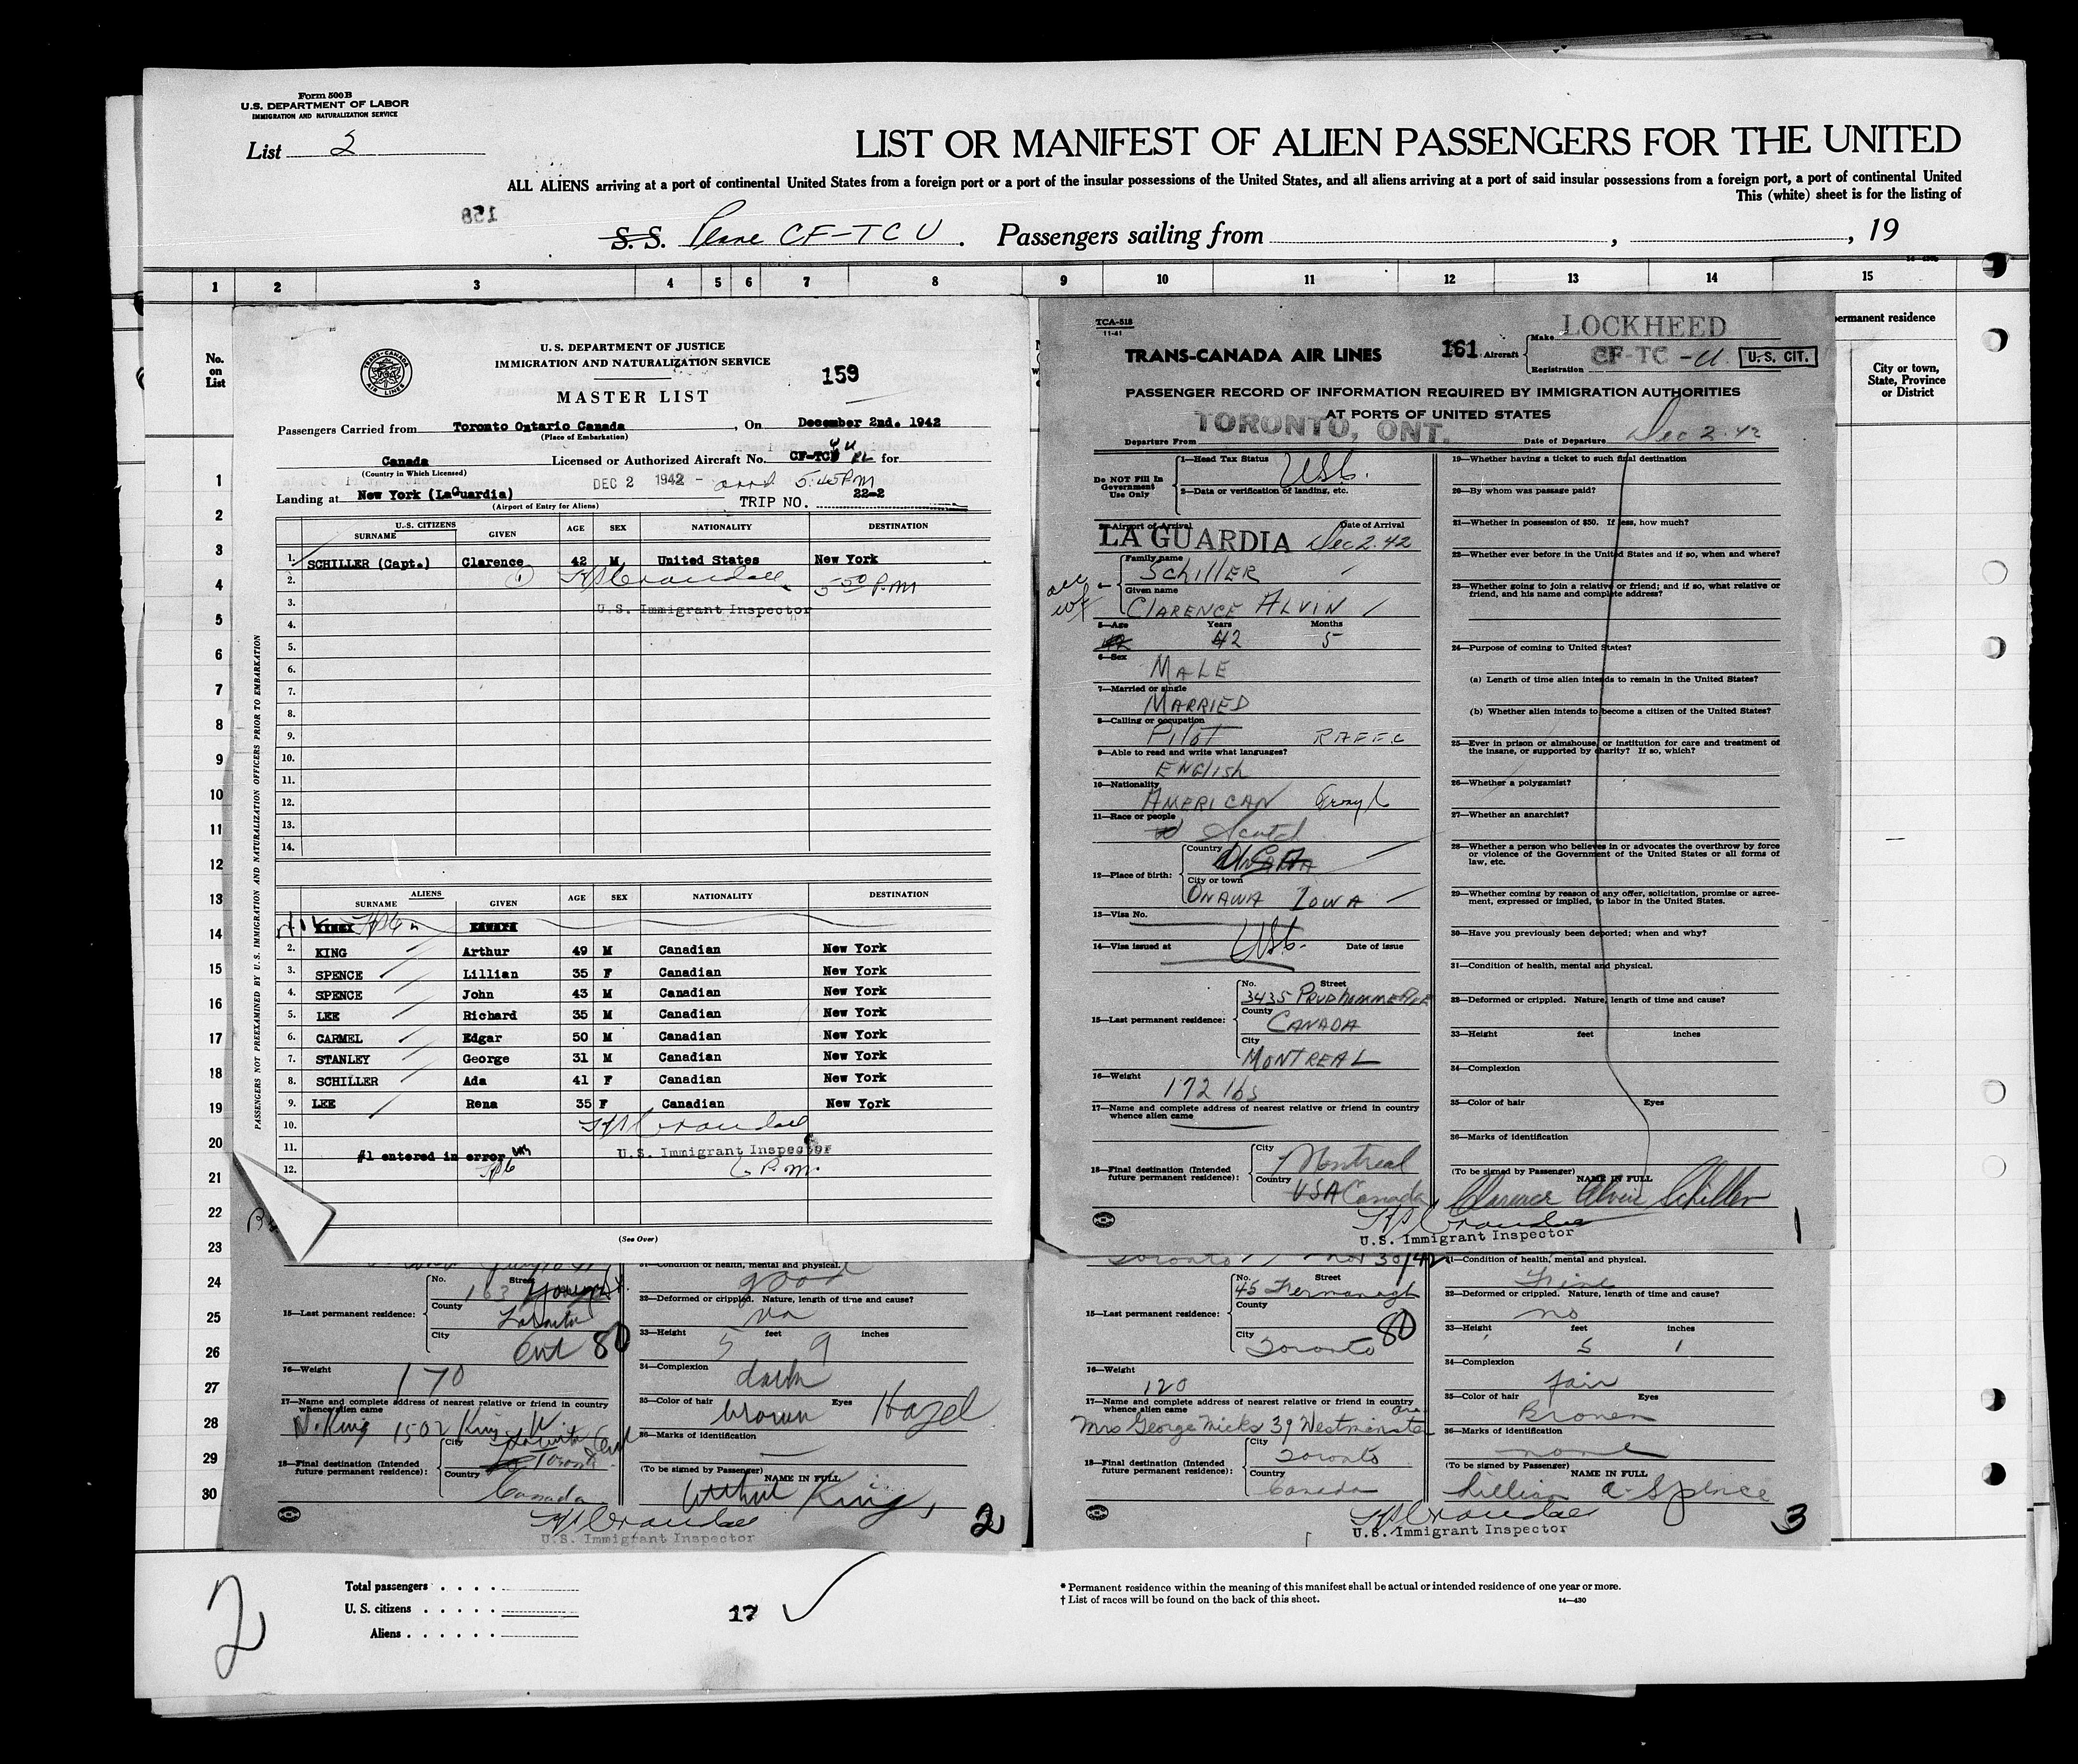 Form 500B
U.S. DEPARTMENT OF LABOR
IMMIGRATION AND NATURALIZATION SERVICE
List 2
LIST OR MANIFEST OF ALIEN PASSENGERS FOR THE UNITED
ALL ALIENS arriving at a port of continental United States from a foreign port or a port of the insular possessions of the United States, and all aliens arriving at a port of said insular possessions from a foreign port, a port of continental United
This (white) sheet is for the listing of
158
S. S. Plane CF-TCU. Passengers sailing from , , 19
1 2 3 4 5 6 7 8 9 10 11 12 13 14 15
No. on List
permanent residence
City or town, State, Province or District
1
2
3
4
5
6
7
8
9
10
11
12
13
14
15
16
17
18
19
20
21
22
23
24
25
26
27
28
29
30
TRANS-CANADA AIR LINES
U. S. DEPARTMENT OF JUSTICE
IMMIGRATION AND NATURALIZATION SERVICE
159
MASTER LIST
Passengers Carried from Toronto Ontario Canada, On December 2nd. 1942
(Place of Embarkation)
Canada Licensed or Authorized Aircraft No. CF-TC U for
(Country in Which Licensed)
DEC 2 1942 - arrd 5:45 PM
Landing at New York (LaGuardia) TRIP NO. 22-2
(Airport of Entry for Aliens)
U.S. CITIZENS
SURNAME GIVEN AGE SEX NATIONALITY DESTINATION
1. SCHILLER (Capt.) Clarence 42 M United States New York
2. 5 50 P.M
3. U.S. Immigrant Inspector
4.
5.
6.
7.
8.
9.
10.
11.
12.
13.
14.
ALIENS
SURNAME GIVEN AGE SEX NATIONALITY DESTINATION
2. KING Arthur 49 M Canadian New York
3. SPENCE Lillian 35 F Canadian New York
4. SPENCE John 43 M Canadian New York
5. LEE Richard 35 M Canadian New York
6. CARMEL Edgar 50 M Canadian New York
7. STANLEY George 31 M Canadian New York
8. SCHILLER Ada 41 F Canadian New York
9. LEE Rena 35 F Canadian New York
10.
11. #1 entered in error U.S. Immigrant Inspector
12. 6 P.M.
(See Over)
PASSENGERS NOT PREEXAMINED BY U.S. IMMIGRATION AND NATURALIZATION OFFICERS PRIOR TO EMBARKATION
TCA-518
11-41
TRANS-CANADA AIR LINES
161
Aircraft Make LOCKHEED
Registration CF-TC-U
U.S. CIT.
PASSENGER RECORD OF INFORMATION REQUIRED BY IMMIGRATION AUTHORITIES
AT PORTS OF UNITED STATES
Departure From TORONTO, ONT. Date of Departure Dec 2. 42
Do NOT Fill In Government Use Only
1—Head Tax Status USC.
2—Data or verification of landing, etc.
3—Airport of Arrival LA GUARDIA Date of Arrival Dec 2. 42
Family name SCHILLER
Given name CLARENCE ALVIN
5—Age Years 42 Months 5
6—Sex MALE
7—Married or single MARRIED
8—Calling or occupation PILOT
9—Able to read and write what languages? ENGLISH
10—Nationality AMERICAN
11—Race or people Scotch
12—Place of birth: Country USA
City or town ONAWA IOWA
13—Visa No.
14—Visa issued at USC. Date of issue
15—Last permanent residence: No. Street 3435 PRUDHOMME AVE
County CANADA
City MONTREAL
16—Weight 172 lbs
17—Name and complete address of nearest relative or friend in country
whence alien came
18—Final destination (Intended future permanent residence): City Montreal
Country USA Canada
19—Whether having a ticket to such final destination
20—By whom was passage paid?
21—Whether in possession of $50. If less, how much?
22—Whether ever before in the United States and if so, when and where?
23—Whether going to join a relative or friend; and if so, what relative or
friend, and his name and complete address?
24—Purpose of coming to United States?
(a) Length of time alien intends to remain in the United States?
(b) Whether alien intends to become a citizen of the United States?
25—Ever in prison or almshouse, or institution for care and treatment of
the insane, or supported by charity? If so, which?
26—Whether a polygamist?
27—Whether an anarchist?
28—Whether a person who believes in or advocates the overthrow by force
or violence of the Government of the United States or all forms of
law, etc.
29—Whether coming by reason of any offer, solicitation, promise or agree-
ment, expressed or implied, to labor in the United States.
30—Have you previously been deported; when and why?
31—Condition of health, mental and physical.
32—Deformed or crippled. Nature, length of time and cause?
33—Height feet inches
34—Complexion
35—Color of hair Eyes
36—Marks of identification
(To be signed by Passenger) NAME IN FULL
Clarence Alvin Schiller
U.S. Immigrant Inspector
1
15—Last permanent residence: No. Street 163
County Toronto
City Ont 80
16—Weight 170
17—Name and complete address of nearest relative or friend in country
whence alien came
King 1502 King W
18—Final destination (Intended future permanent residence): City Toronto
Country Canada
31—Condition of health, mental and physical.
good
32—Deformed or crippled. Nature, length of time and cause?
no
33—Height 5 feet 9 inches
34—Complexion dark
35—Color of hair brown Eyes Hazel
36—Marks of identification —
(To be signed by Passenger) NAME IN FULL
Arthur King
U.S. Immigrant Inspector
2
Toronto Nov 30/42
15—Last permanent residence: No. Street 45 Fermanagh
County
City Toronto 80
16—Weight 120
17—Name and complete address of nearest relative or friend in country
whence alien came
Mrs George Hicks 39 Westminster Ave
18—Final destination (Intended future permanent residence): City Toronto
Country Canada
31—Condition of health, mental and physical.
Fine
32—Deformed or crippled. Nature, length of time and cause?
no
33—Height 5 feet 1 inches
34—Complexion fair
35—Color of hair Brown Eyes
36—Marks of identification none
(To be signed by Passenger) NAME IN FULL
Lillian A. Spence
U.S. Immigrant Inspector
3
2
Total passengers . . . .
U. S. citizens . . . . .
Aliens . . . . . .
17
* Permanent residence within the meaning of this manifest shall be actual or intended residence of one year or more.
† List of races will be found on the back of this sheet.
14—430